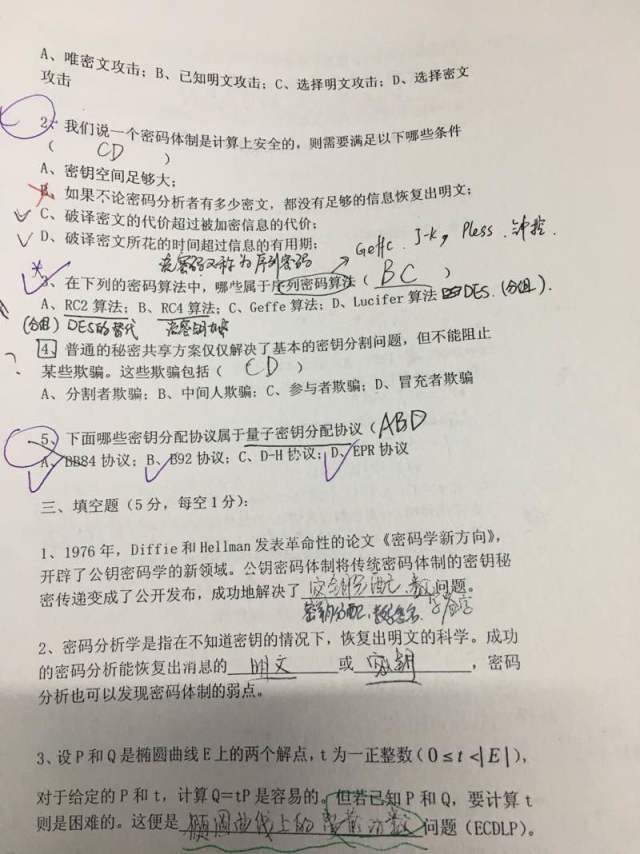 A、唯密文攻击；B、已知明文攻击；C、选择明文攻击；D、选择密文
攻击
2、我们说一个密码体制是计算上安全的，则需要满足以下哪些条件
（ CD ）
A、密钥空间足够大；
B、如果不论密码分析者有多少密文，都没有足够的信息恢复出明文；
C、破译密文的代价超过被加密信息的代价；
D、破译密文所花的时间超过信息的有用期；
流密码又称为序列密码
Geffe、J-k，Pless、钟控.
3、在下列的密码算法中，哪些属于序列密码算法（ BC ）
A、RC2 算法；B、RC4 算法；C、Geffe 算法；D、Lucifer 算法 DES（分组）.
（分组）DES的替代
4、普通的秘密共享方案仅仅解决了基本的密钥分割问题，但不能阻止
某些欺骗。这些欺骗包括（ CD ）
A、分割者欺骗；B、中间人欺骗；C、参与者欺骗；D、冒充者欺骗
5、下面哪些密钥分配协议属于量子密钥分配协议（ABD
A、BB84 协议；B、B92 协议；C、D-H 协议；D、EPR 协议
三、填空题（5 分，每空 1 分）：
1、1976 年，Diffie 和 Hellman 发表革命性的论文《密码学新方向》，
开辟了公钥密码学的新领域。公钥密码体制将传统密码体制的密钥秘
密传递变成了公开发布，成功地解决了 密钥分配、数 问题。
密钥分配、数字签名
2、密码分析学是指在不知道密钥的情况下，恢复出明文的科学。成功
的密码分析能恢复出消息的 明文 或 密钥 ，密码
分析也可以发现密码体制的弱点。
3、设 P 和 Q 是椭圆曲线 E 上的两个解点，t 为一正整数（0≤t<|E|），
对于给定的 P 和 t，计算 Q=tP 是容易的。但若已知 P 和 Q，要计算 t
则是困难的。这便是 椭圆曲线上的离散对数 问题（ECDLP）。